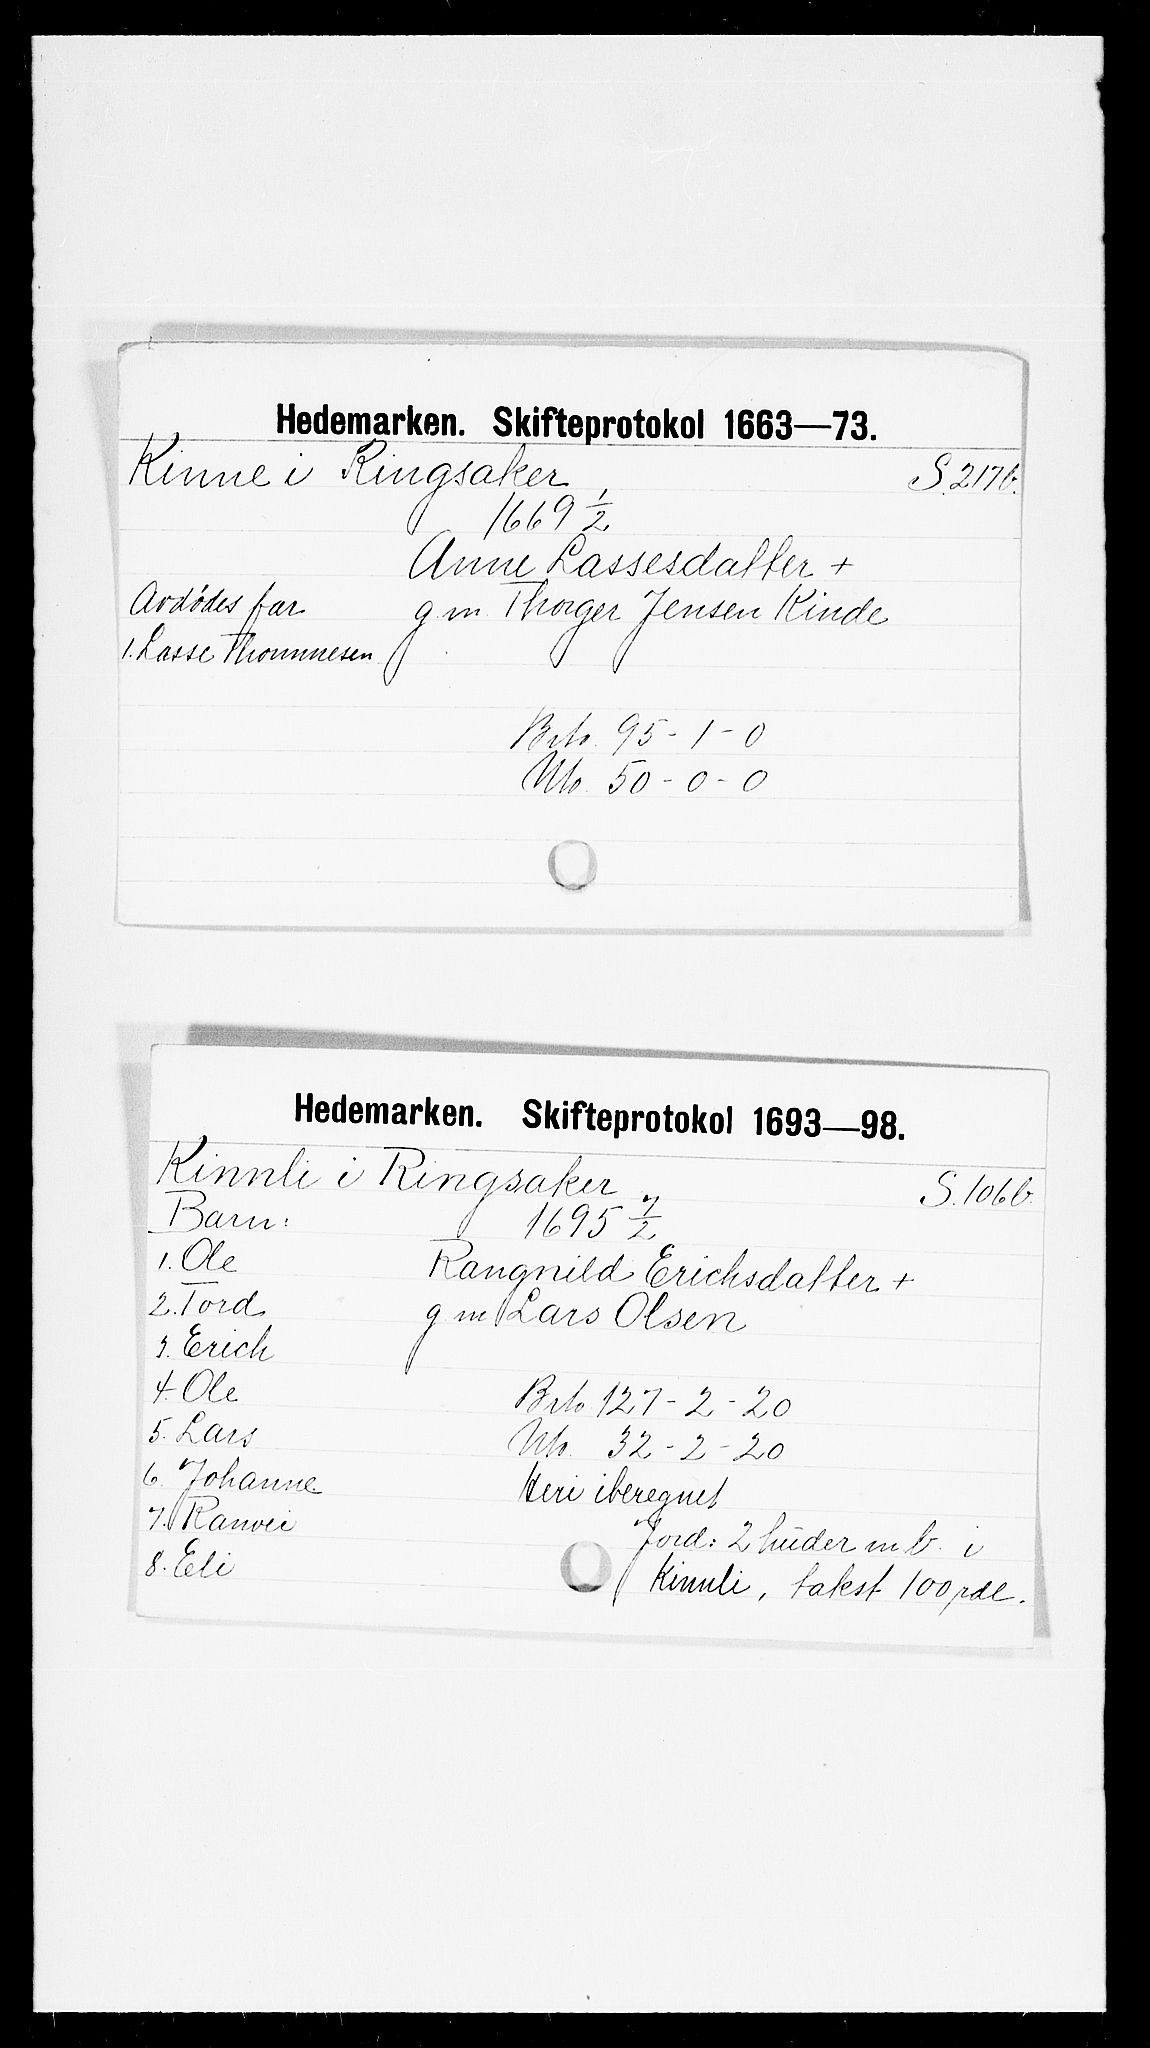 Hedemarken. Skifteprotokol 1663—73.
Kinne i Ringsaker S. 217b.
1669 1/2
Anne Lassesdatter +
Avdødes far g m Thorger Jensen Kinde
1. Lasse Thommesen
Brto. 95 - 1 - 0
Nto. 50 - 0 - 0
Hedemarken. Skifteprotokol 1693—98.
Kinnli i Ringsaker S. 106b.
Barn: 1695 7/2
1. Ole Rangnild Erichsdatter +
2. Tord g m Lars Olsen
3. Erich
4. Ole Brto 127 - 2 - 20
5. Lars Nto. 32 - 2 - 20
6. Johanne Heri iberegnet
7. Ranvei Jord: 2 huder m b. i
8. Eli Kinnli, takst 100 rdl.